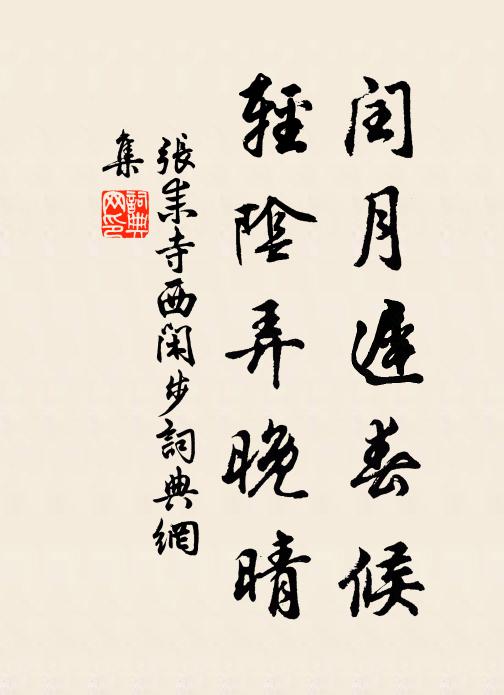 閏月遲春候
輕陰弄晚晴
張耒寺西閑步詞典網
集
詞典
网印